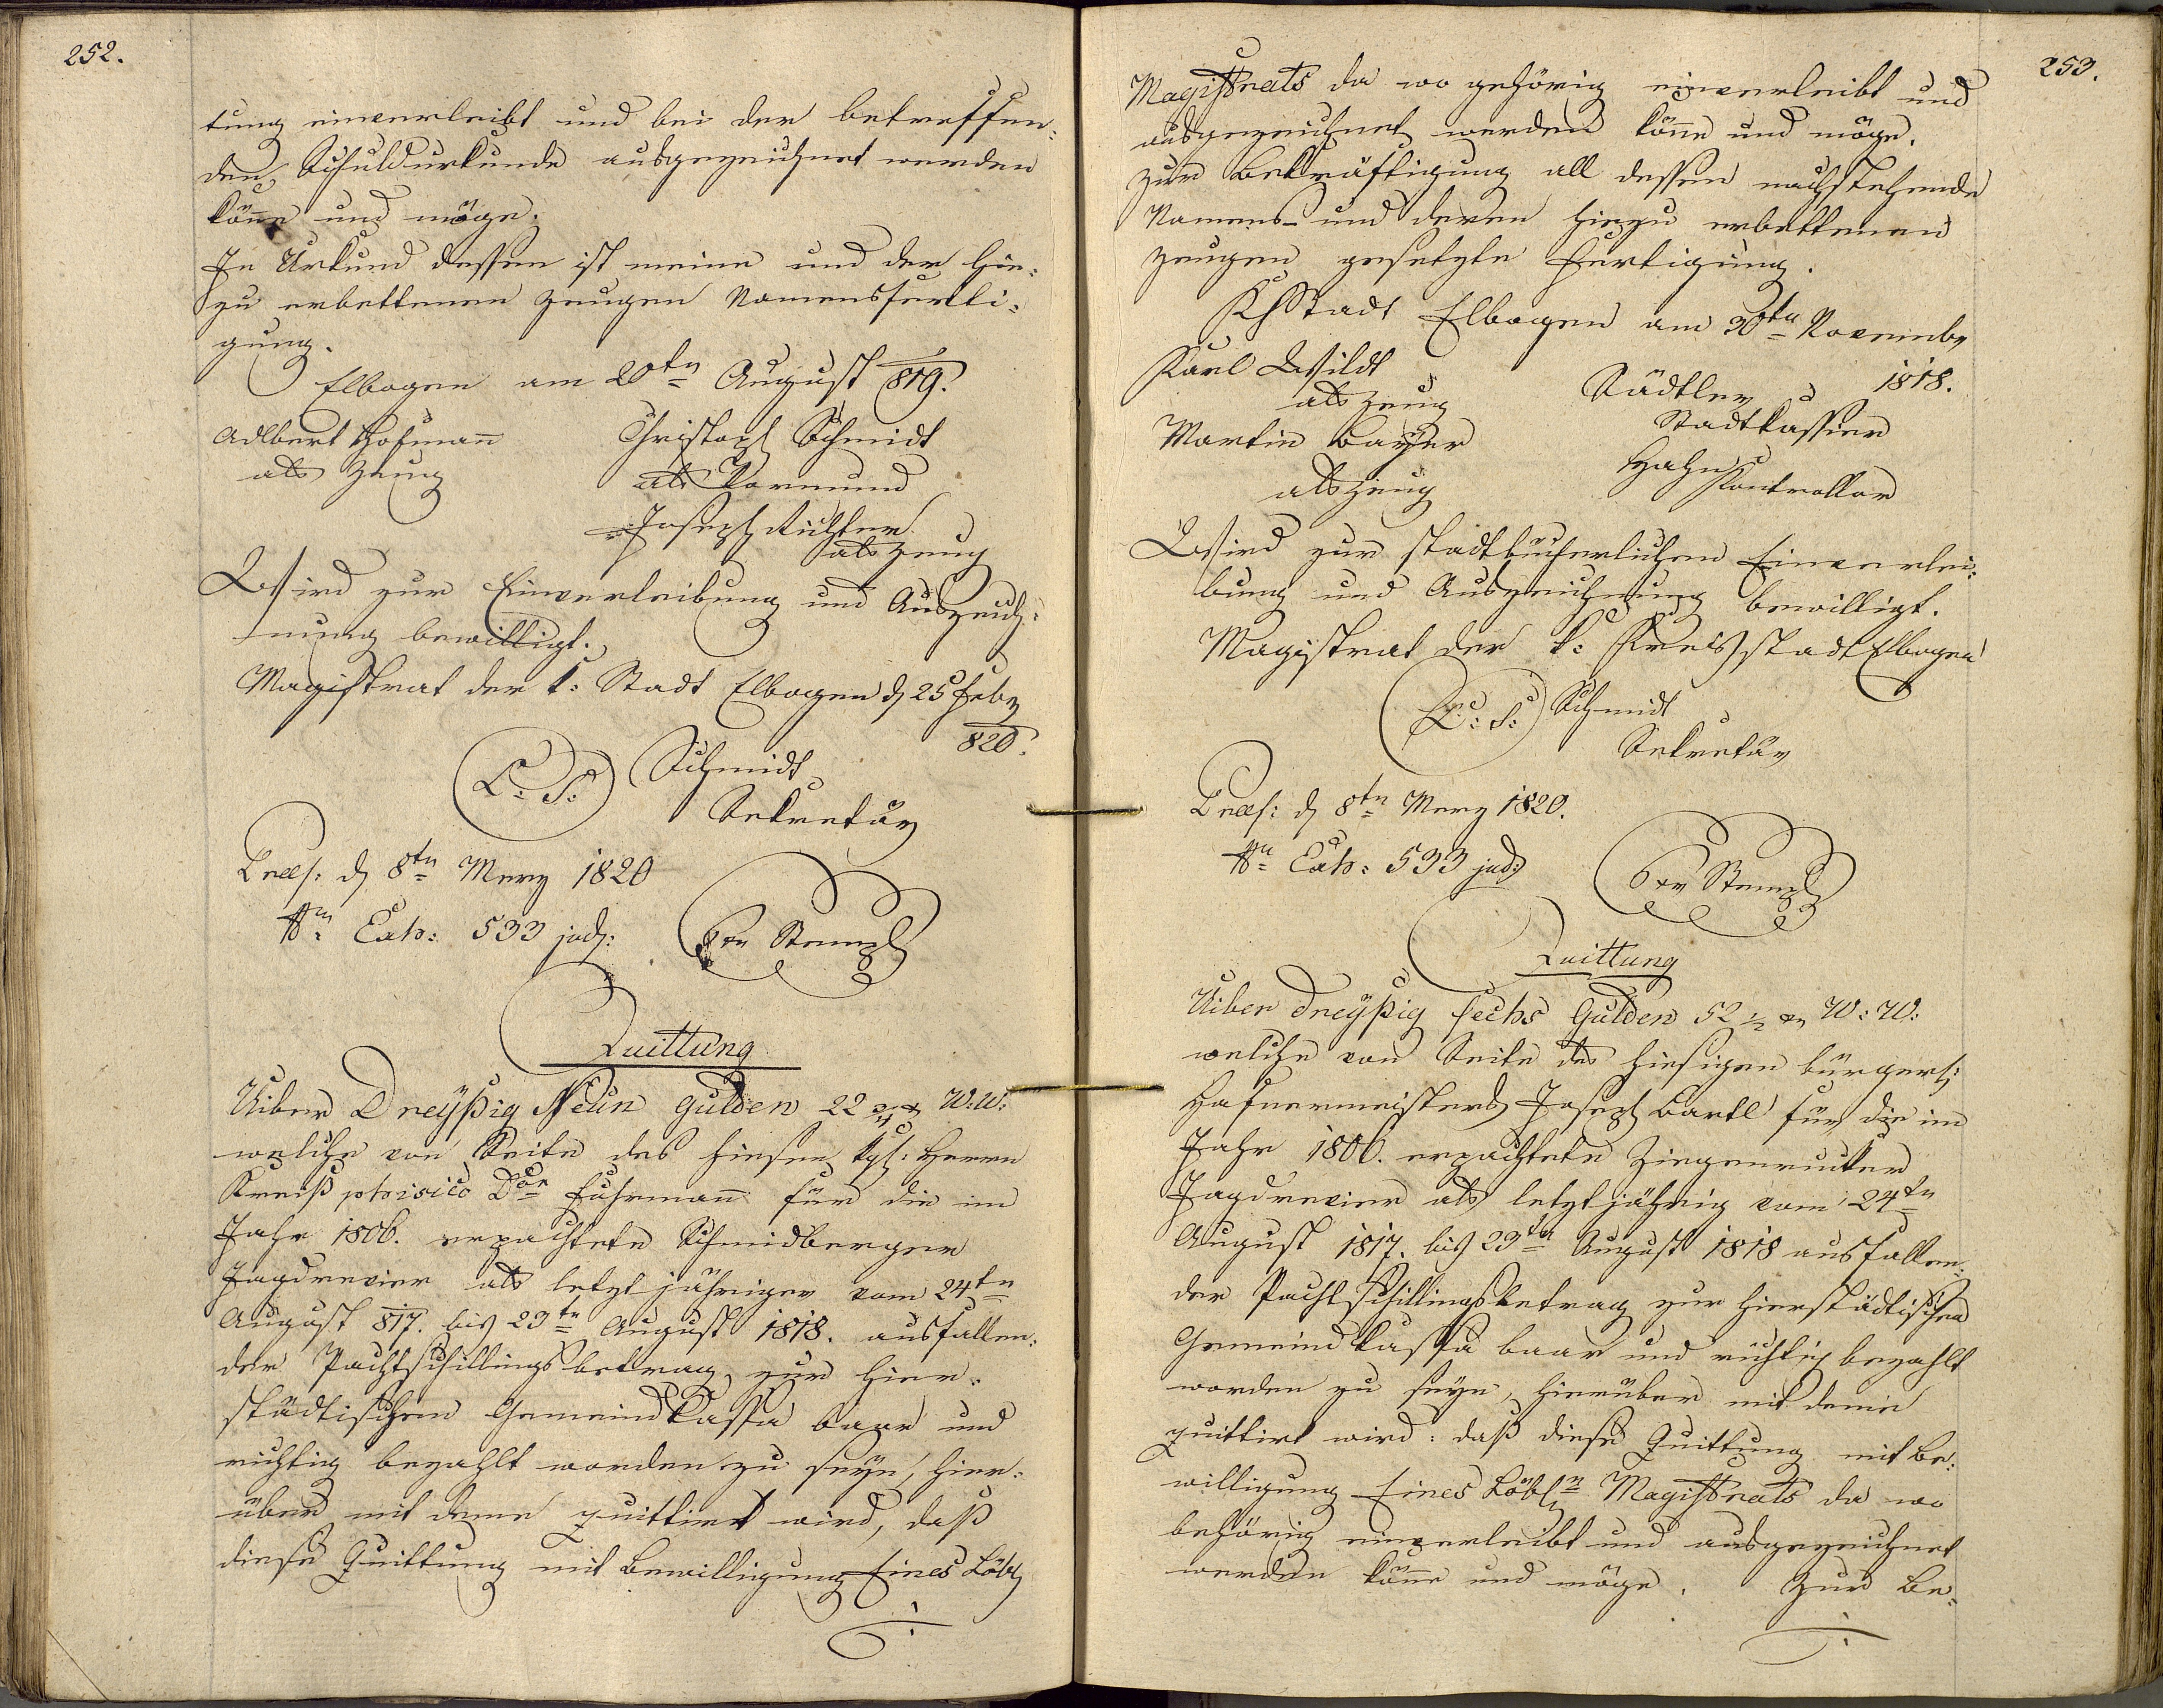 252.
tung einverleibt und bei der betreffen=
den Schuldurkunde ausgezeichnet werden
könne und möge.
In Urkund dessen ist meine und der hie=
zu erbettenen Zeugen Namensferti=
gung.
Elbogen am 20tn August 819.
Adlbert Hofmann Christoph Schmidt
als Zeug als Vormund
Joseph Richter
als Zeug
Wird zur Einverleibung und Auszeich=
nung bewilligt.
Magistrat der k: Stadt Elbogen d 25 Feby
820.
L: S: Schmidt
Sekretär
Præs: d 8tn Merz 1820
Nn Exh: 533 jud: 6 xr Stempl
Quittung
Uiber Dreyßig Neun Gulden 22 xr W:W:
welche von Seite des hiesen kgl: Herrn
Kreiß phisico Dor Fuhrmann für die im
Jahr 1806. erpachtete Schmidberger
Jagdrevier als letzt jähriger vom 24tn
August 817. bis 23tn August 1818. ausfallen=
der Pachtschillingsbetrag zur hier=
städtischen Gemeindkassa baar und
richtig bezahlt worden zu seyn, hier=
über mit deme quittirt wird, daß
diese Quittung mit Bewilligung Eines Löbl
253.
Magistrats da wo gehörig einverleibt und
ausgezeichnet werden könne und möge.
Zur Bekräftigung all dessen nachstehende
Namens- und deren hiezu erbettenen
Zeugen gesetzte Fertigung.
Stadt Elbogen am 30tn Novembr
1818.
Karl Wildt Städtler
als Zeug Stadtkassier
Martin Bayer Hahn
als Zeug Kontrollor
Wird zur stadtbücherlichen Einverlei=
bung und Auszeichnung bewilligt.
Magistrat der k: Kreisstadt Elbogen
L: S: Schmidt
Sekretär
Præs: d 8tn Merz 1820.
Nn Exh: 533 jud: 6 xr Stempl
Quittung
Uiber Dreyßig sechs Gulden 52 1/2 xr W:W:
welche von Seite des hiesigen bürgerl:
Hafnermeisters Joseph Bartl für die im
Jahr 1806. erpachtete Ziegenrucker
Jagdrevier als letztjährig vom 24tn
August 1817. bis 23tn August 1818 ausfallen=
der Pachtschillingsbetrag zur hierstädtischen
Gemeindkassa baar und richtig bezahlt
worden zu seyn, hierüber mit deme
quittirt wird: daß diese Quittung mit Be=
willigung Eines Löbln Magistrats da wo
behörig einverleibt und ausgezeichnet
werden könne und möge. Zur Be=